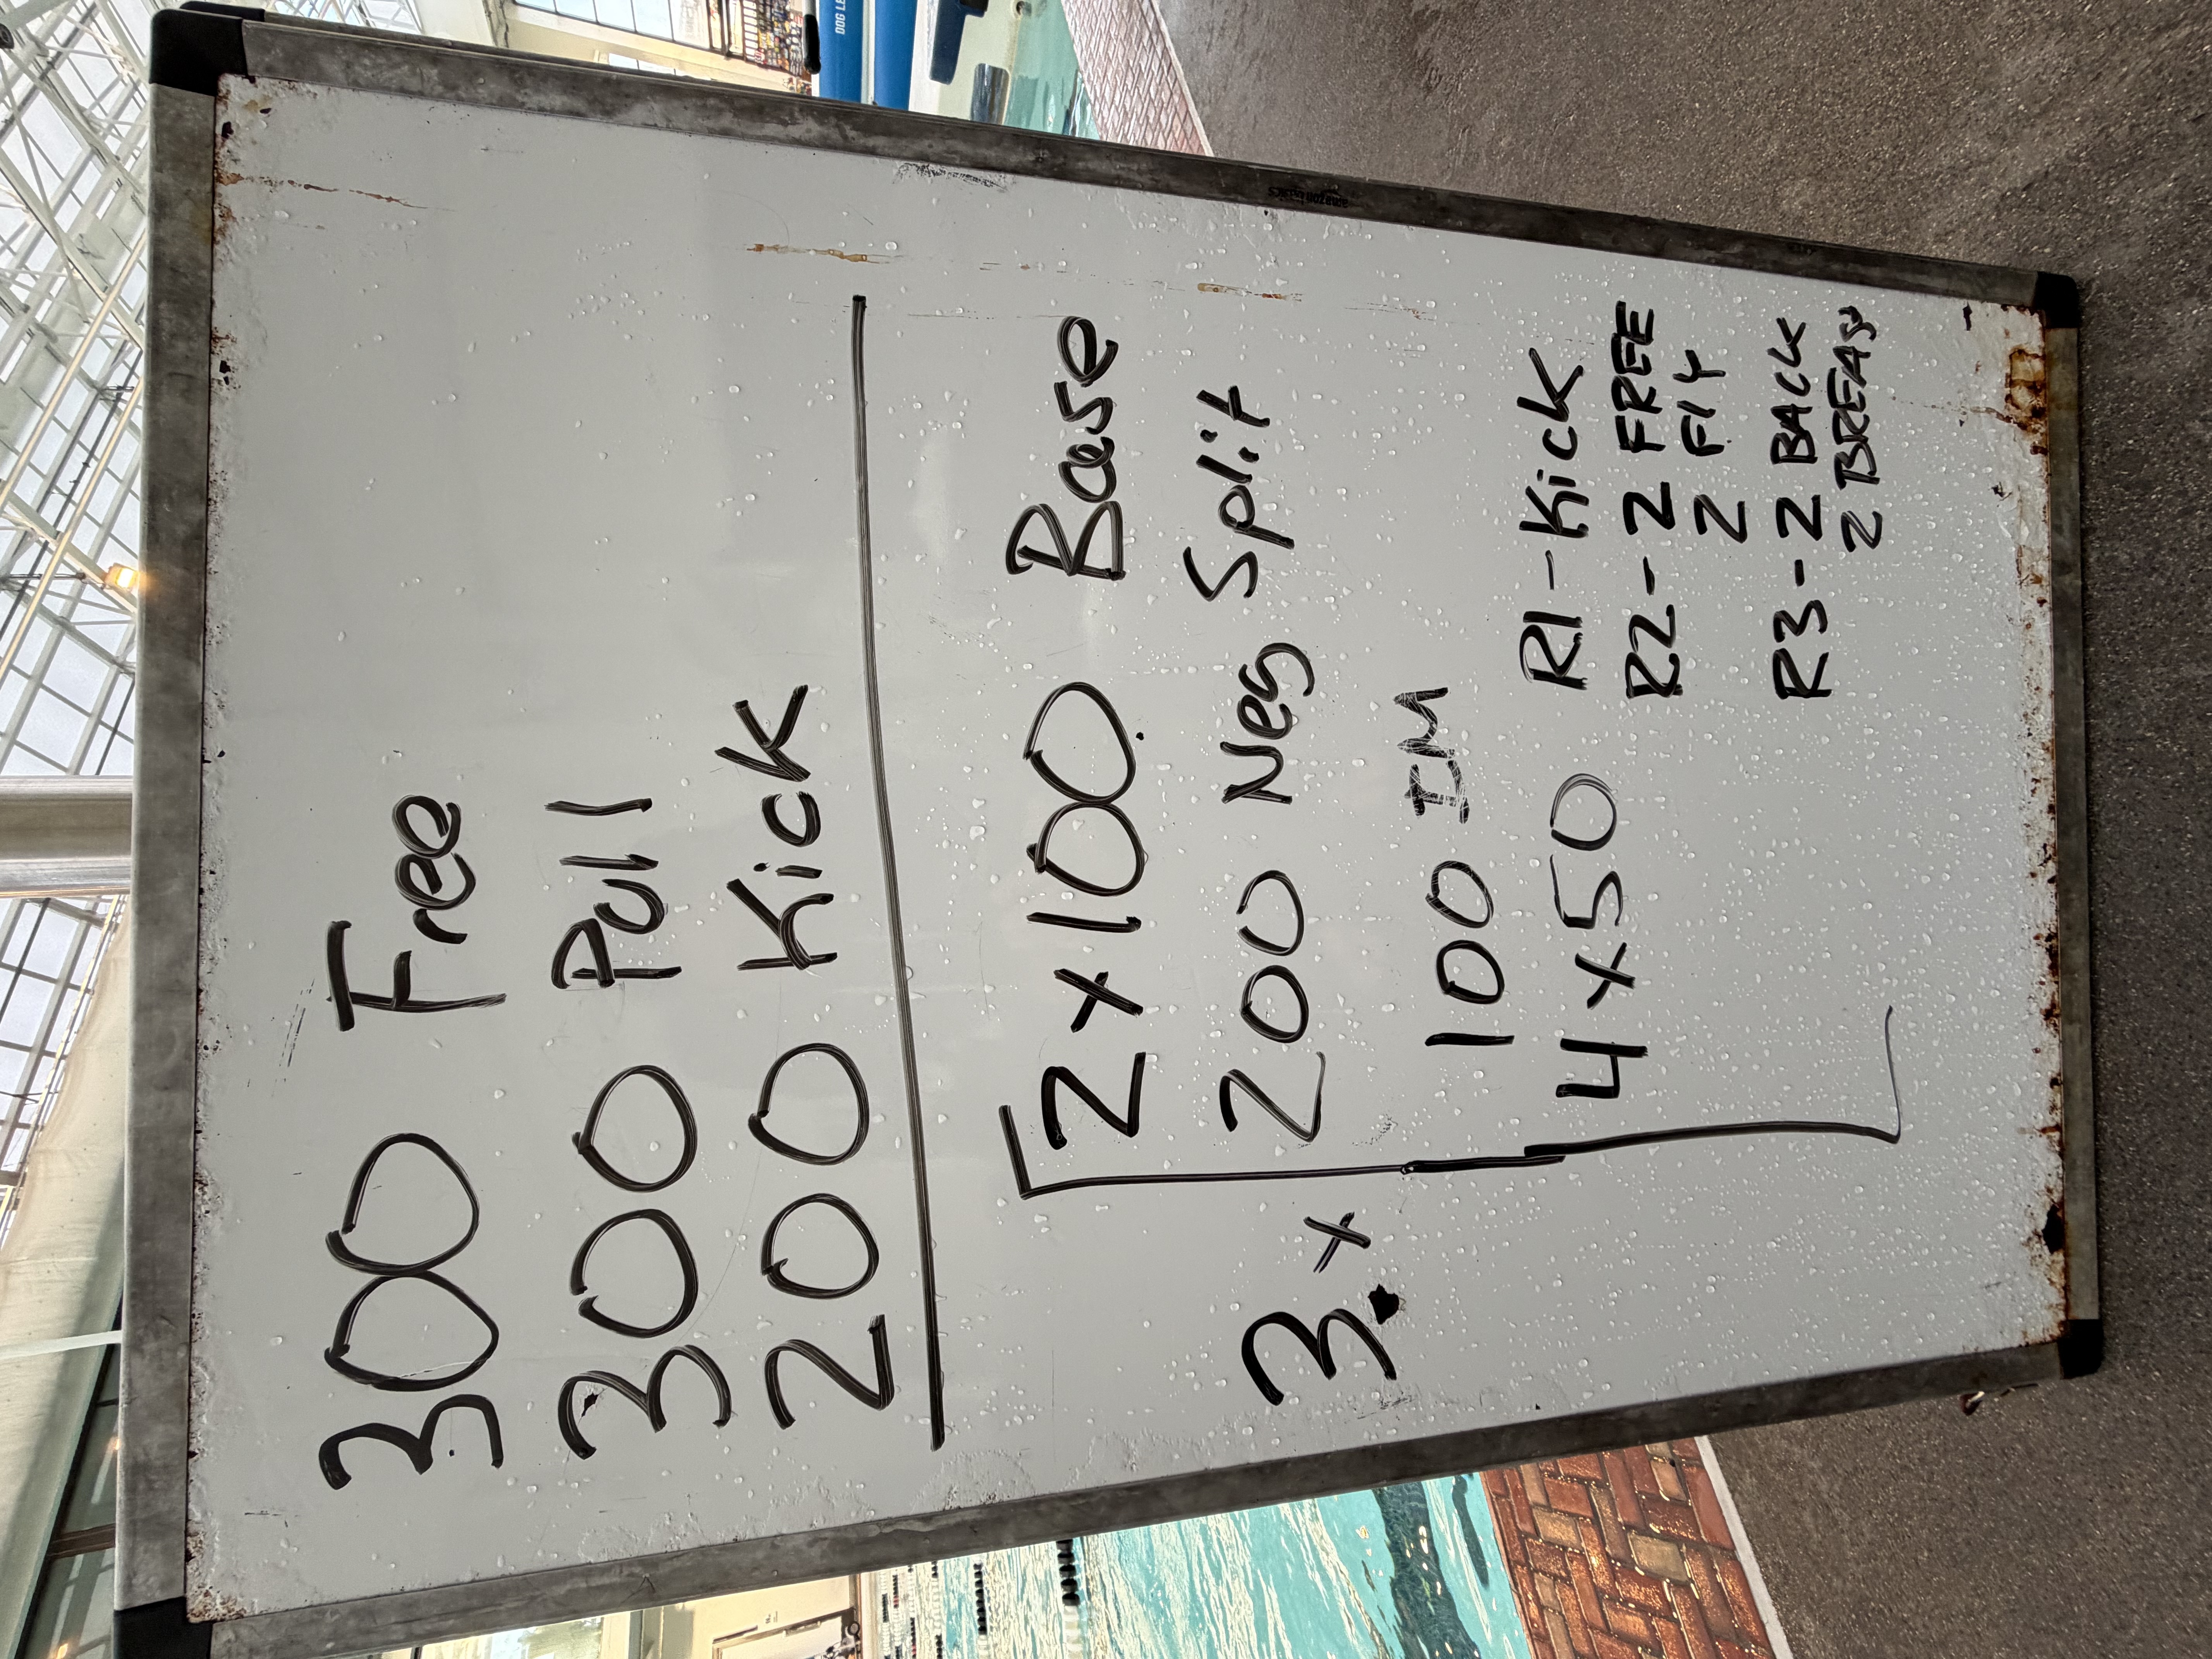 300 Free
300 Pull
200 Kick
3x
2 x 100 Base
200 Neg Split
100 IM
4 x 50 R1 - Kick
R2 - 2 FREE
2 FLY
R3 - 2 BACK
2 BREAST
amazon basics